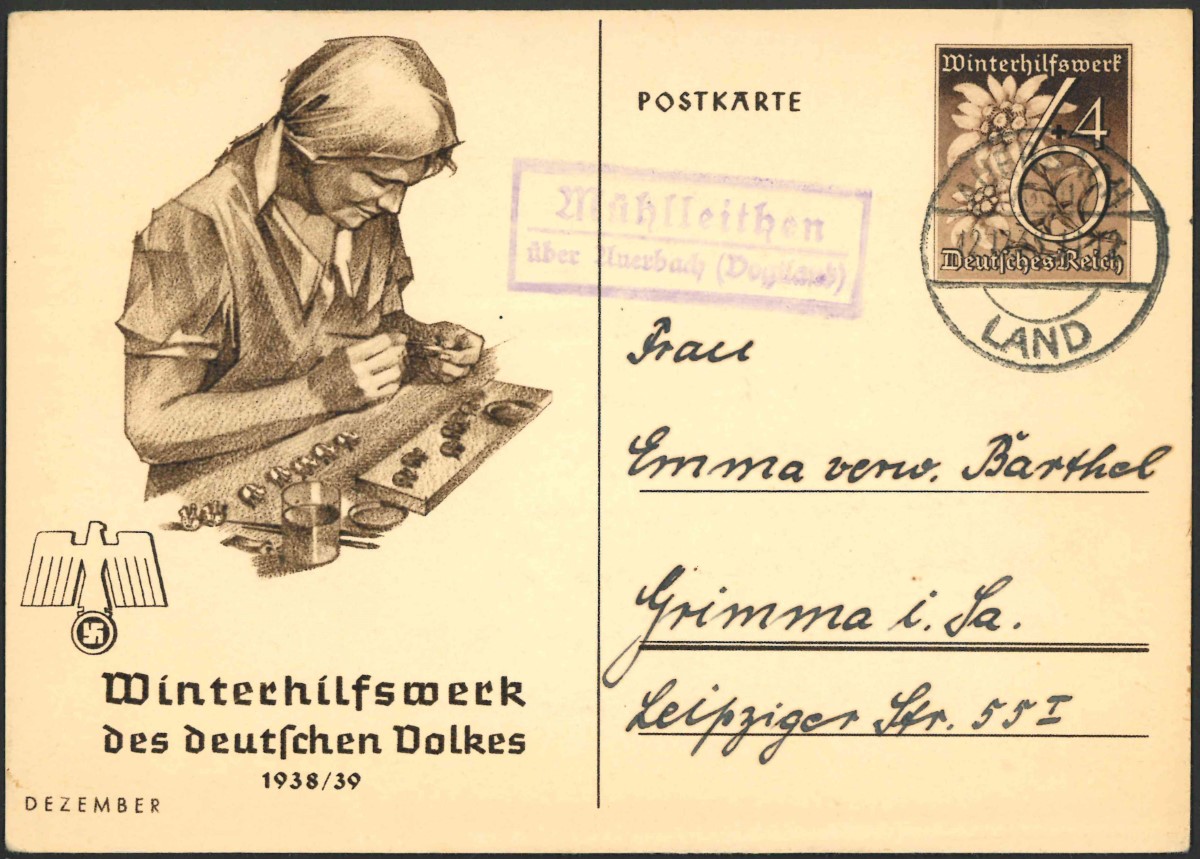 POSTKARTE
Winterhilfswerk
6+4
Deutsches Reich
LAND
Mühlleithen
über Auerbach (Vogtland)
Frau
Emma verw. Barthel
Grimma i. Sa.
Leipziger Str. 55 I
Winterhilfswerk
des deutschen Volkes
1938/39
DEZEMBER